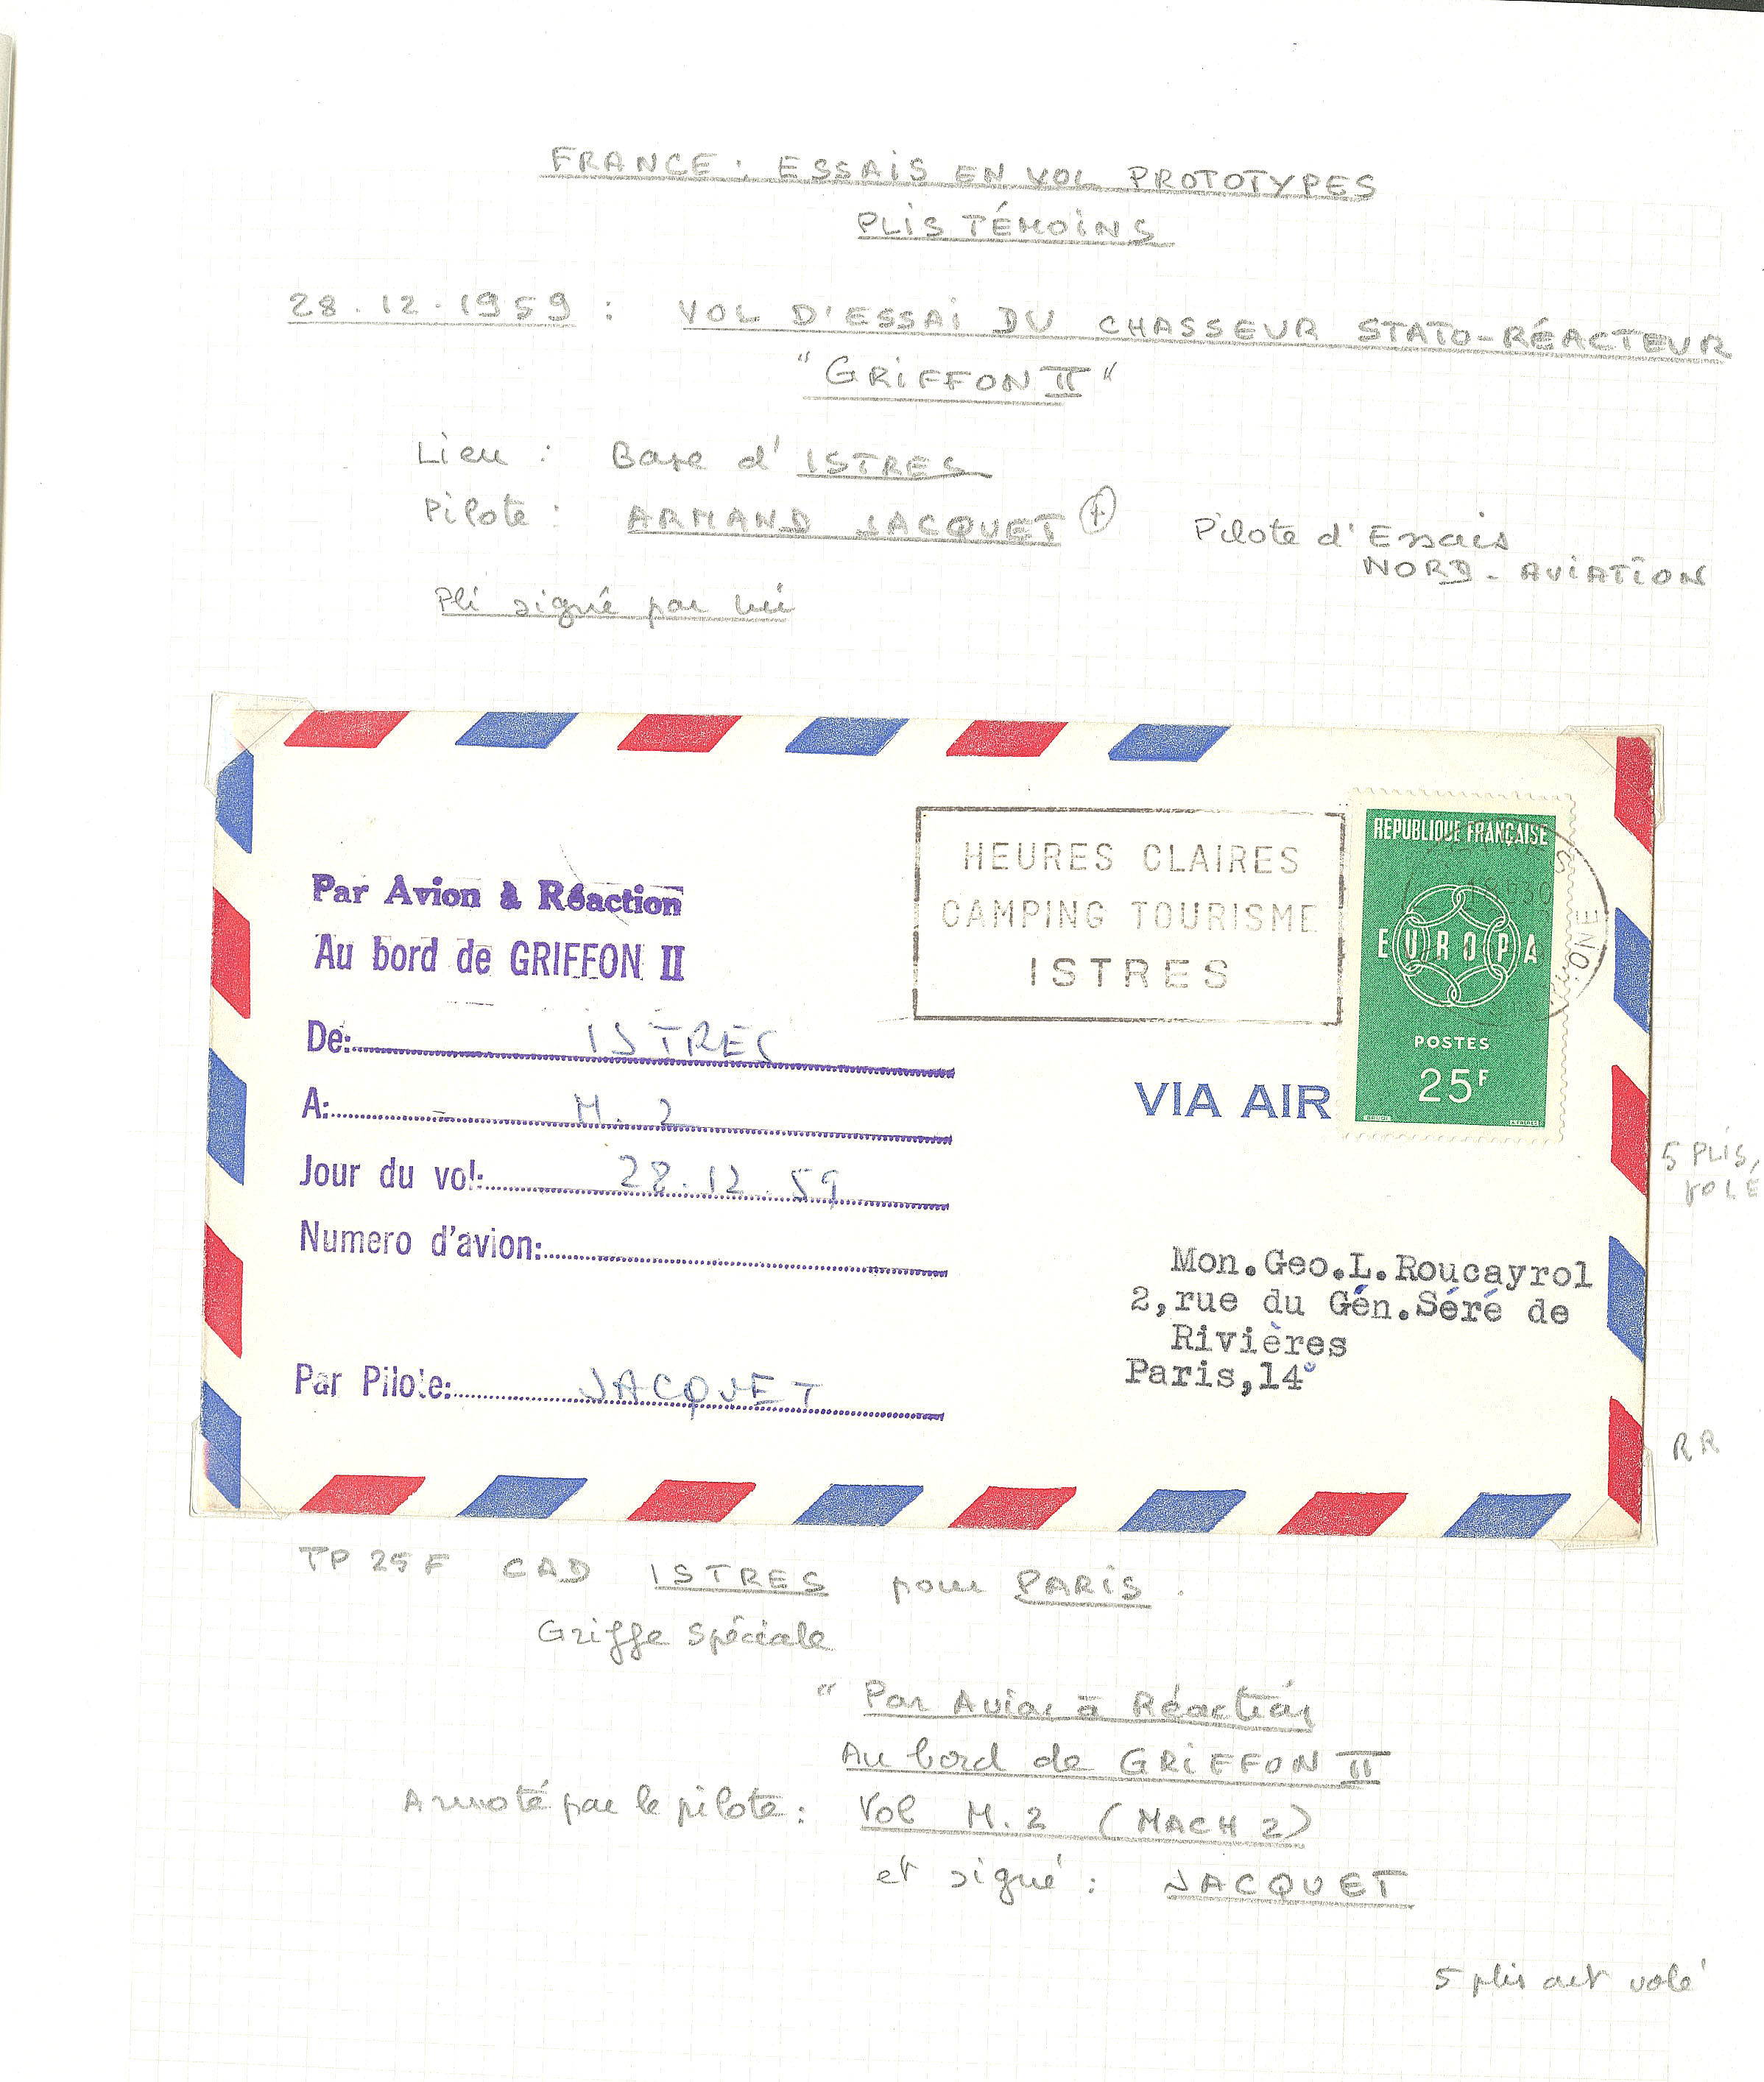 FRANCE : ESSAIS EN VOL PROTOTYPES
PLIS TÉMOINS
28.12.1959 : VOL D'ESSAI DU CHASSEUR STATO-RÉACTEUR
"GRIFFON II"
Lieu : Base d'ISTRES
Pilote : ARMAND JACQUET
Pilote d'Essais
NORD-AVIATION
Pli signé par lui
HEURES CLAIRES
CAMPING TOURISME
ISTRES
REPUBLIQUE FRANÇAISE
EUROPA
POSTES
25F
Par Avion à Réaction
Au bord de GRIFFON II
De: ISTRES
A: M.2
Jour du vol: 28.12.59
Numero d'avion:
Par Pilote: JACQUET
VIA AIR
5 PLIS,
VOLE
Mon.Geo.L.Roucayrol
2,rue du Gén.Séré de
Rivières
Paris,14°
RR
TP 25F CAD ISTRES pour PARIS.
Griffe Spéciale
"Par Avion à Réaction
Au bord de GRIFFON II
Annoté par le pilote : Vol M.2 (MACH 2)
et signé : JACQUET
5 plis ont volé